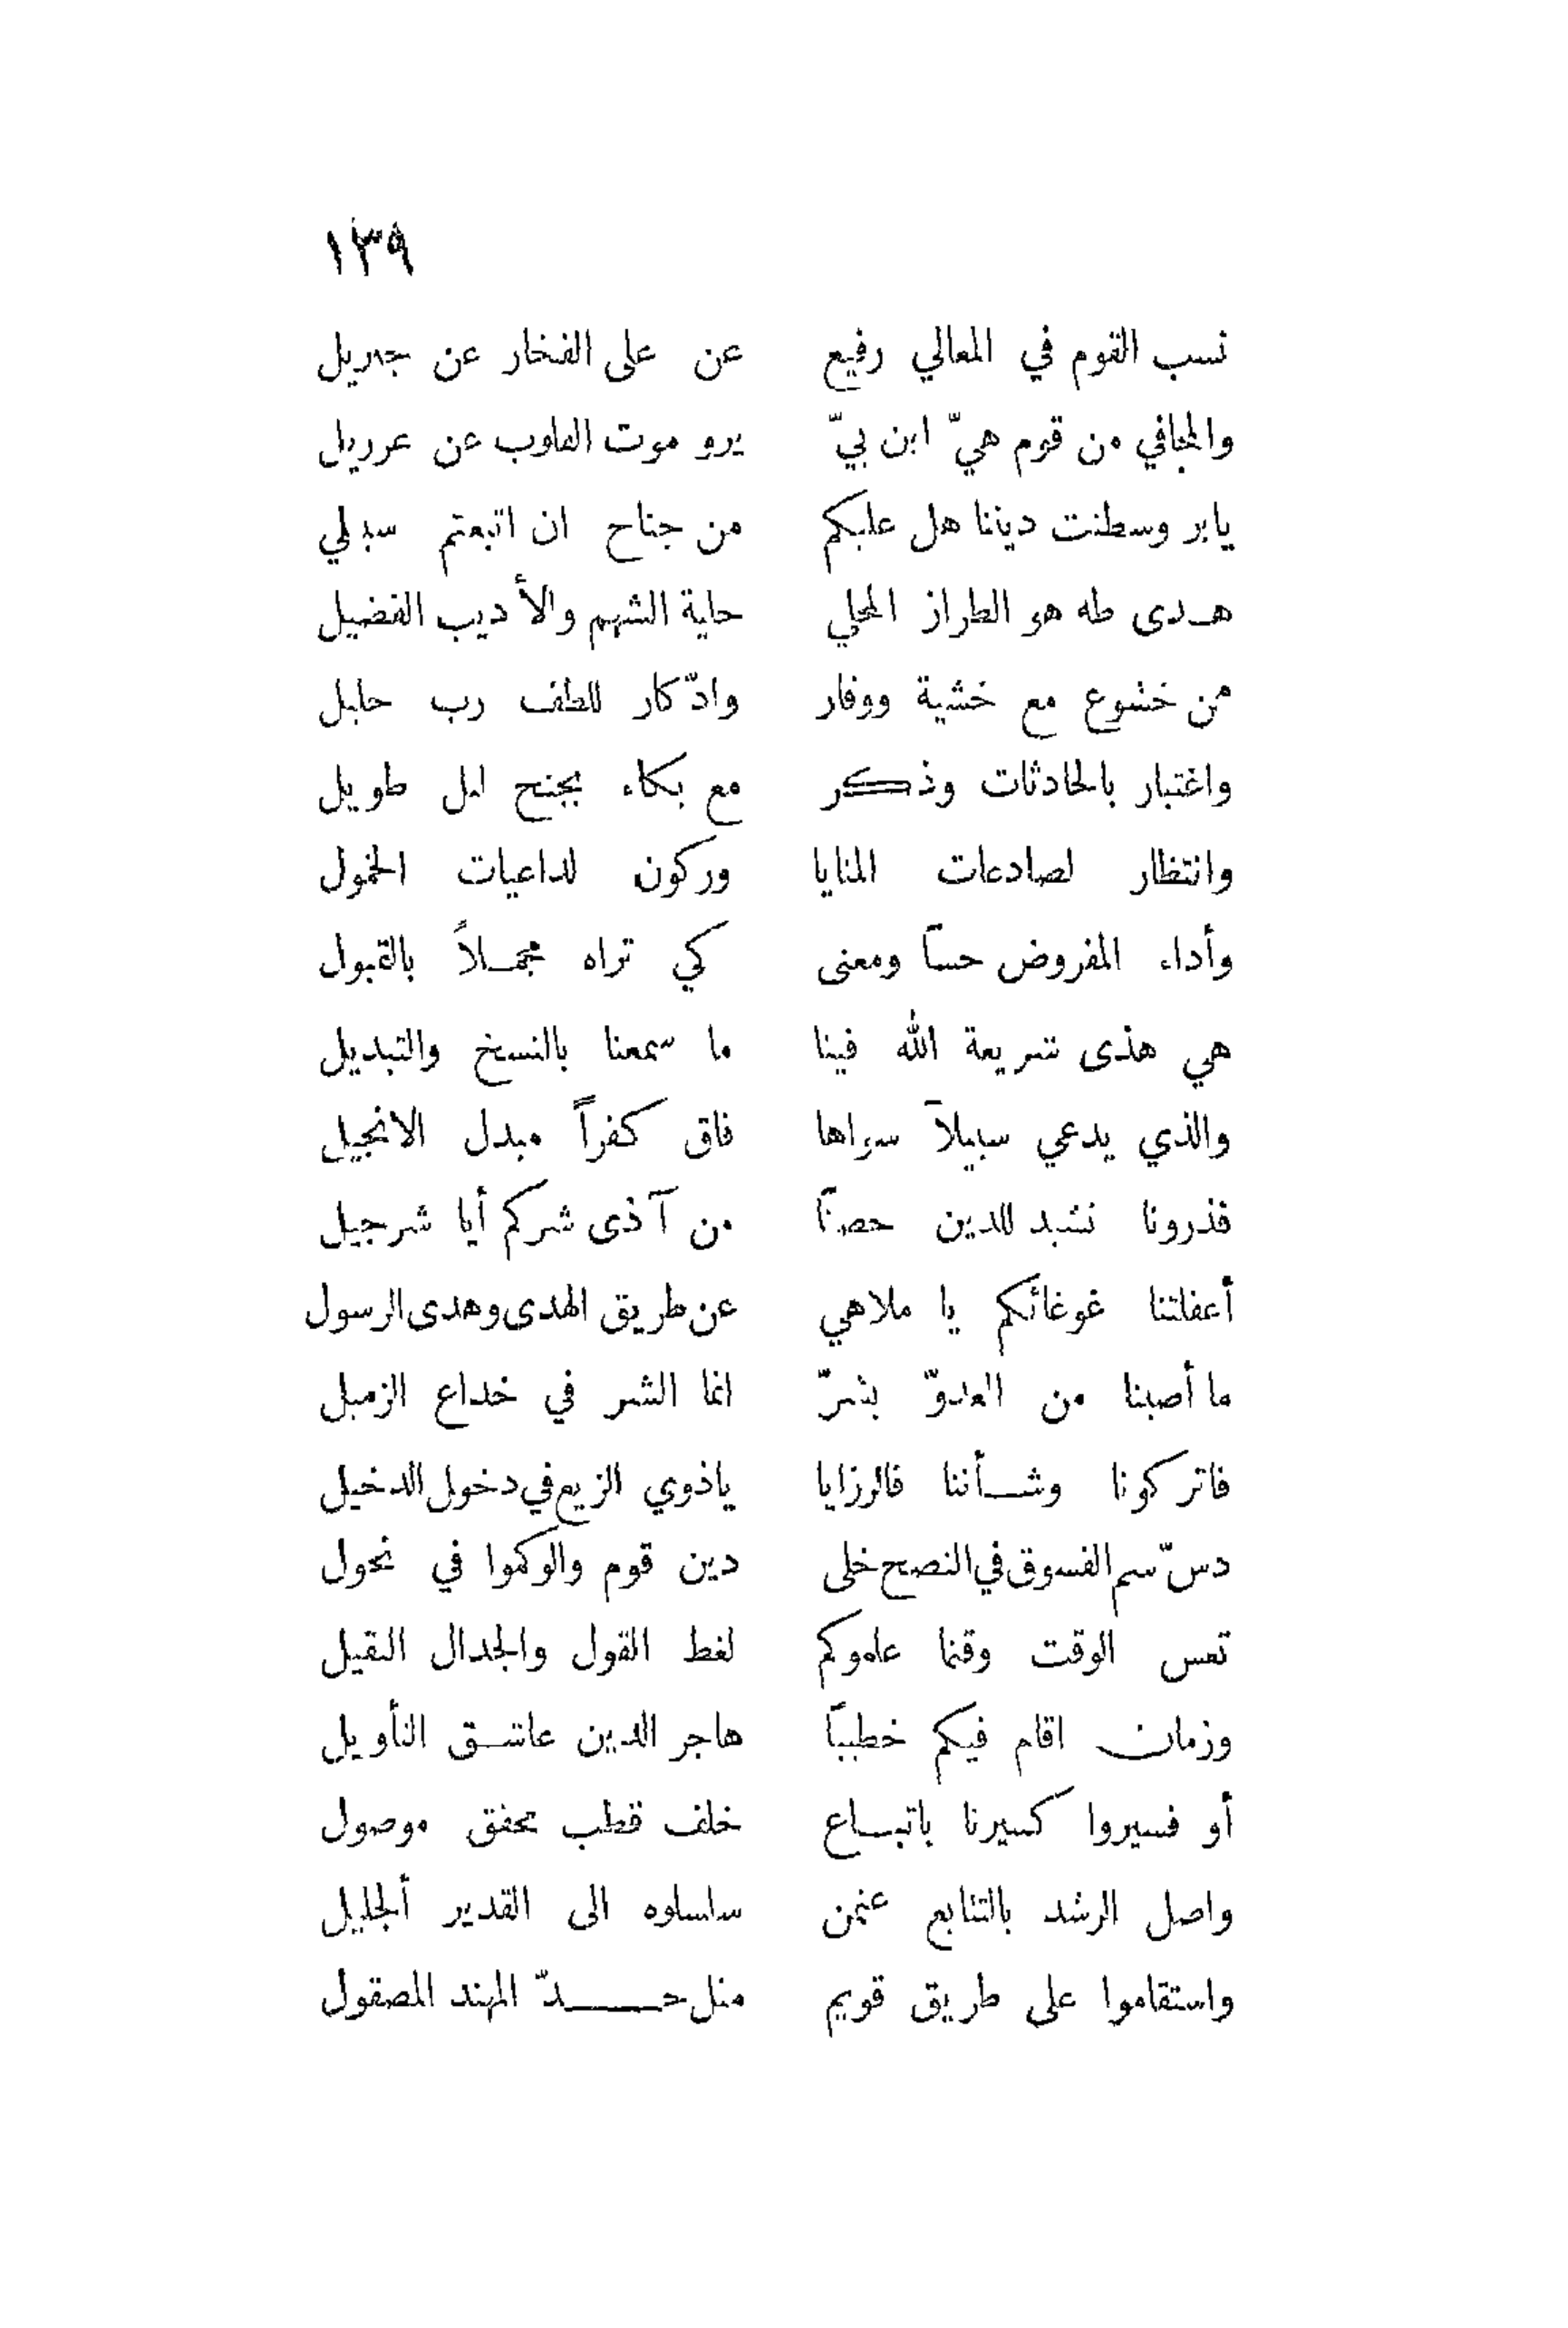 ١٣٩
نسب القوم في المعالي رفيع عن على الفخار عن جبريل
والمجافي من قوم هيّ ابن بيّ يرو موت القلوب عن عزريل
يابر وسطنت ديننا هل عليكم من جناح ان اتبعتم سبيلي
هـدى طه هو الطراز المحلي حلية الشهم والأديب الفضيل
من خشوع مع خشية ووقار وادّكار للطف رب جليل
واغتبار بالحادثات وذكر مع بكاء بجنح ليل طويل
وانتظار لصادعات المنايا وركون لداعيات الخمول
وأداء المفروض حساً ومعنى كي تراه مجمـلاً بالقبول
هي هذى شريعة الله فينا ما سمعنا بالنسخ والتبديل
والذي يدعي سبيلاً سواها فاق كفراً مبدل الانجيل
فذرونا نشيد للدين حصناً من آذى شركم أيا شرجيل
أغفلتنا غوغائكم يا ملاهي عن طريق الهدى وهدى الرسول
ما أصبنا من العدوّ بشرّ انما الشر في خداع الزميل
فاتركونا وشـأننا فالرزايا ياذوي الزيع في دخول الدخيل
دسّ سم الفسوق في النصح خلى دين قوم والوكموا في نحول
تعس الوقت وقتما علموكم لغط القول والجدال الثقيل
وزمان اقام فيكم خطيباً هاجر الدين عاشـق التأويل
أو فسيروا كسيرنا باتبـاع خلف قطب محقق موصول
واصل الرشد بالتتابع عنمن سلسلوه الى القدير ألجليل
واستقاموا على طريق قويم مثل حـدّ المهند المصقول